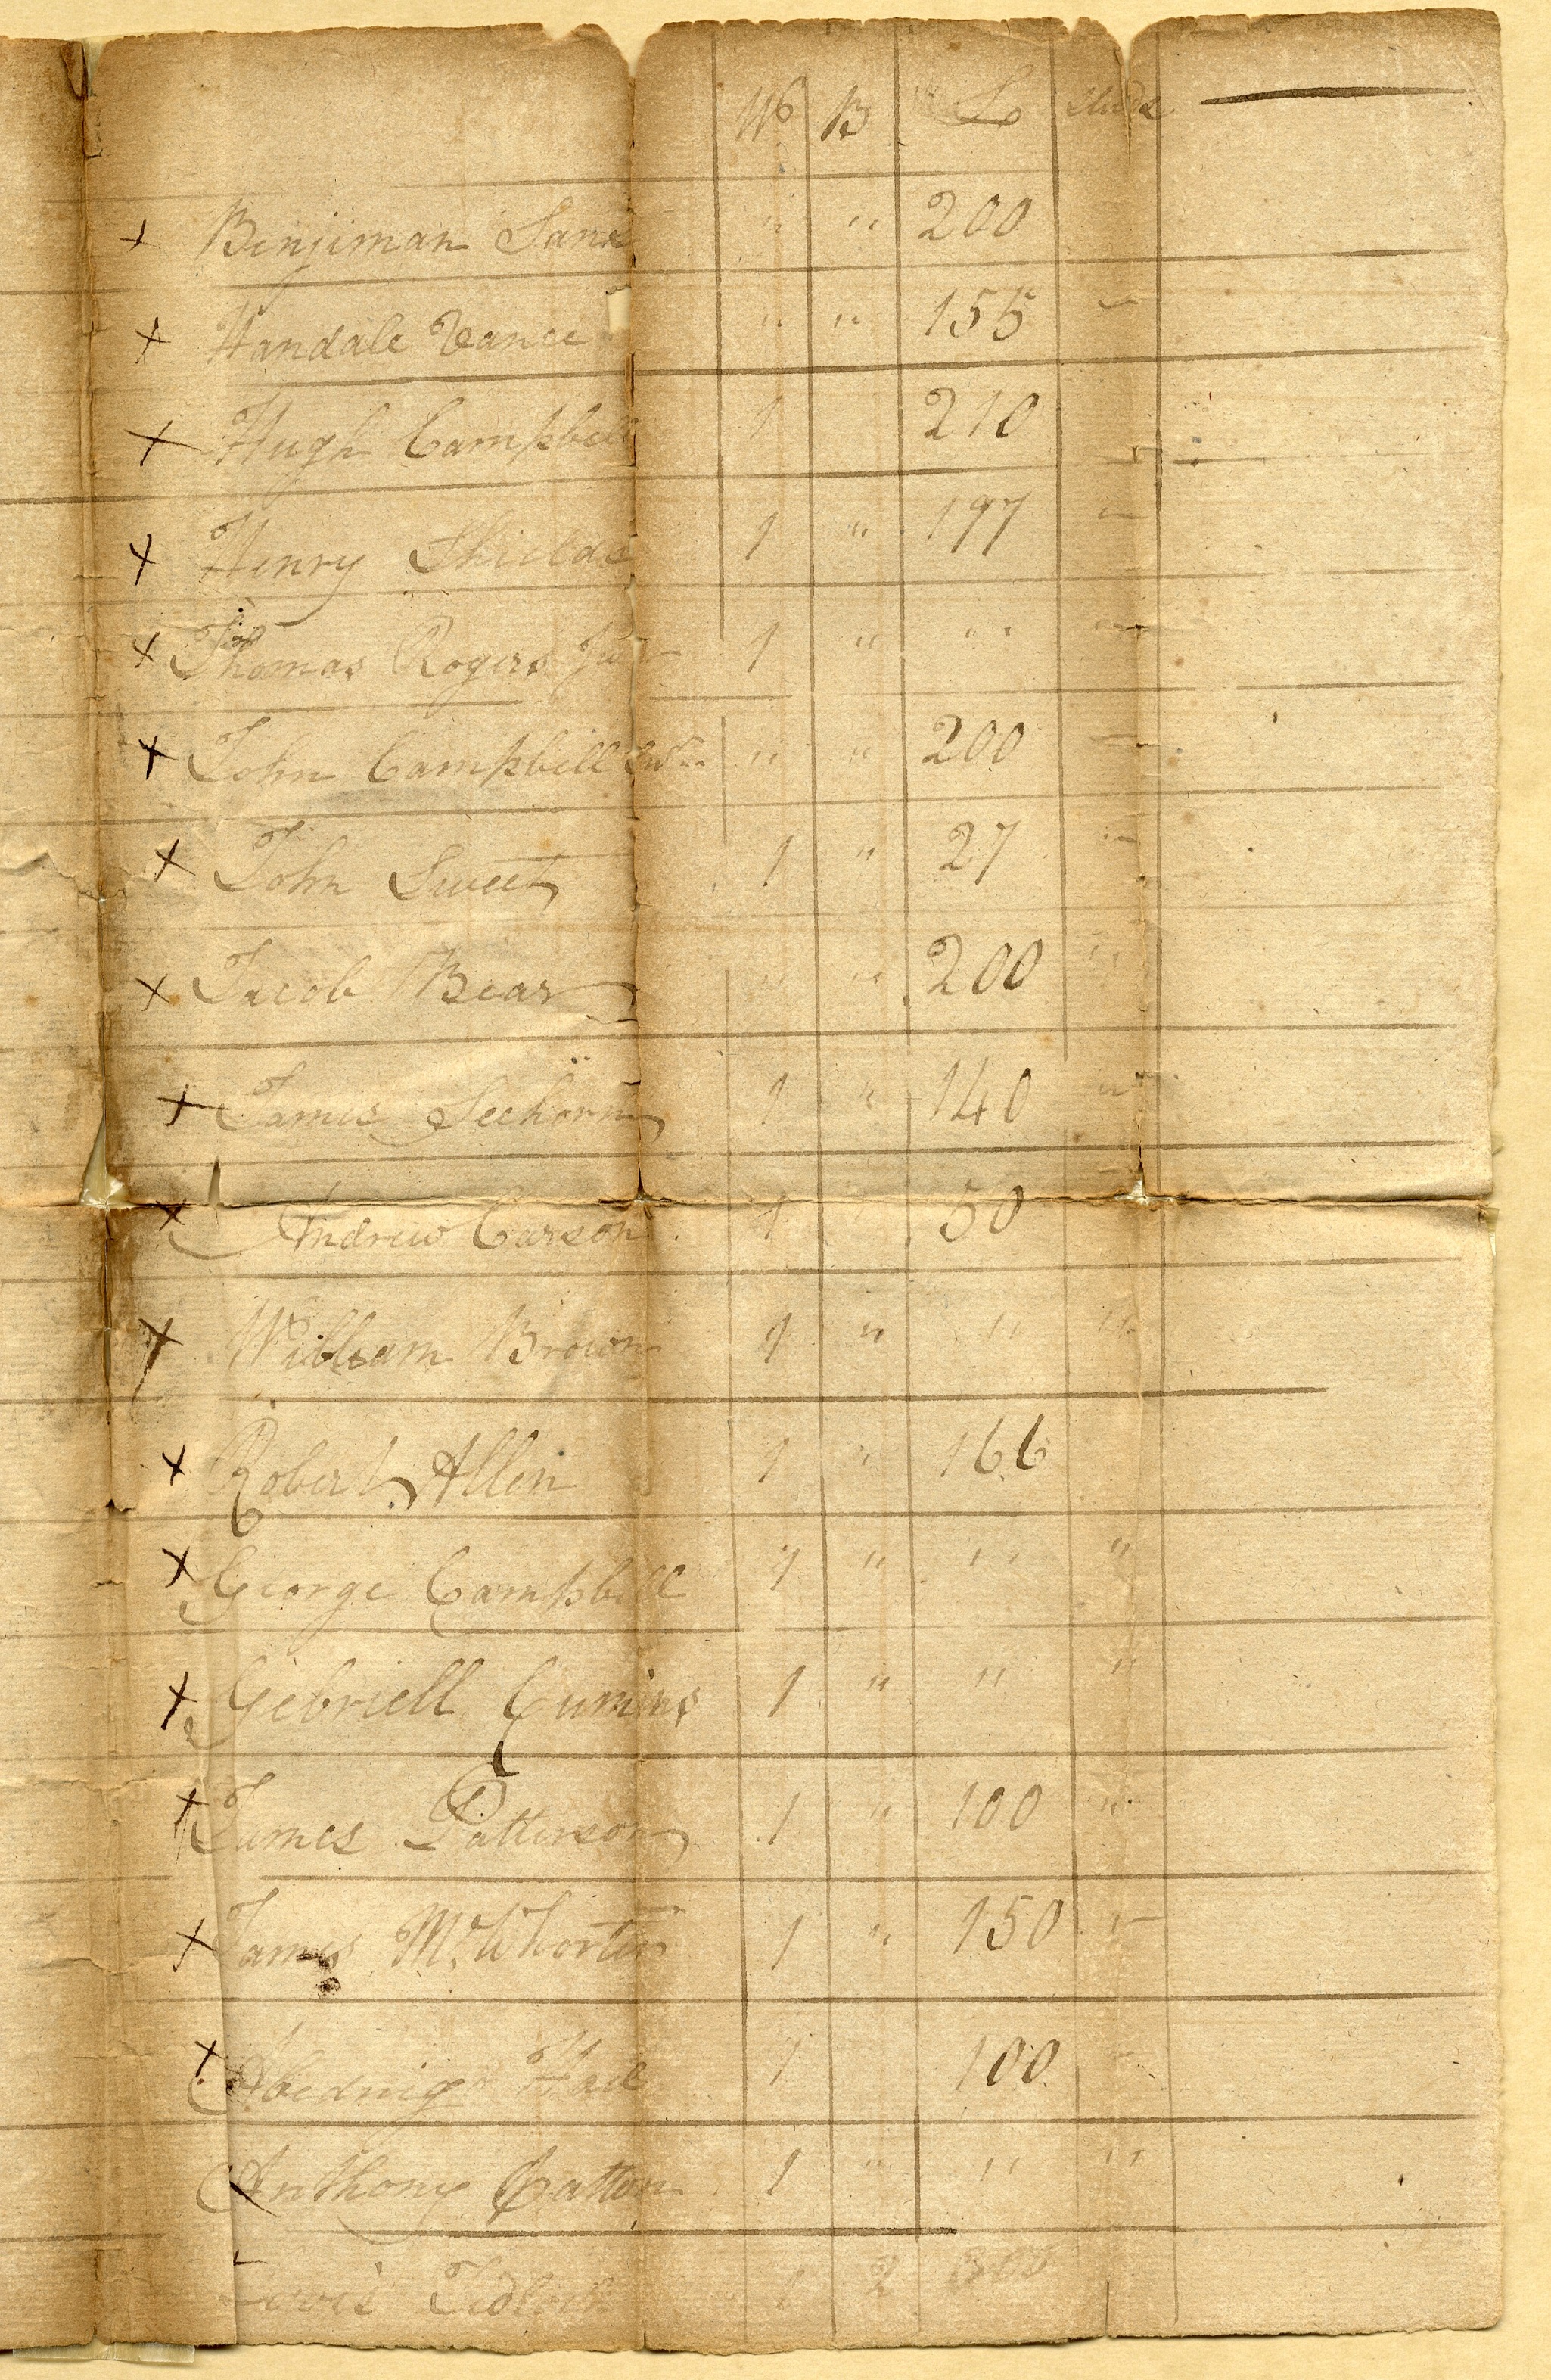 W B L Studs
x Beniiman Lane " " 200
x Handale Vance " " 155 "
x Hugh Campbell 1 210 "
x Henry Shields 1 " 197 "
x Thomas Rogers Junr 1 " " "
x John Campbill " " 200 "
x John Sweet 1 " 27 "
x Jacob Bear " " 200 "
x James Seehorn 1 " 140 "
x Andrew Carson 1 " 50
x William Brown 1 " " "
x Robert Allen 1 " 166
x George Campbill 1 " " "
x Gebriell Cumins 1 " " "
x James Patterson 1 " 100 "
x James McWhorter 1 " 150 "
x Abednigo Hail 1 100 "
Anthony Catton 1 " " "
Lewis Tidlock 1 2 300